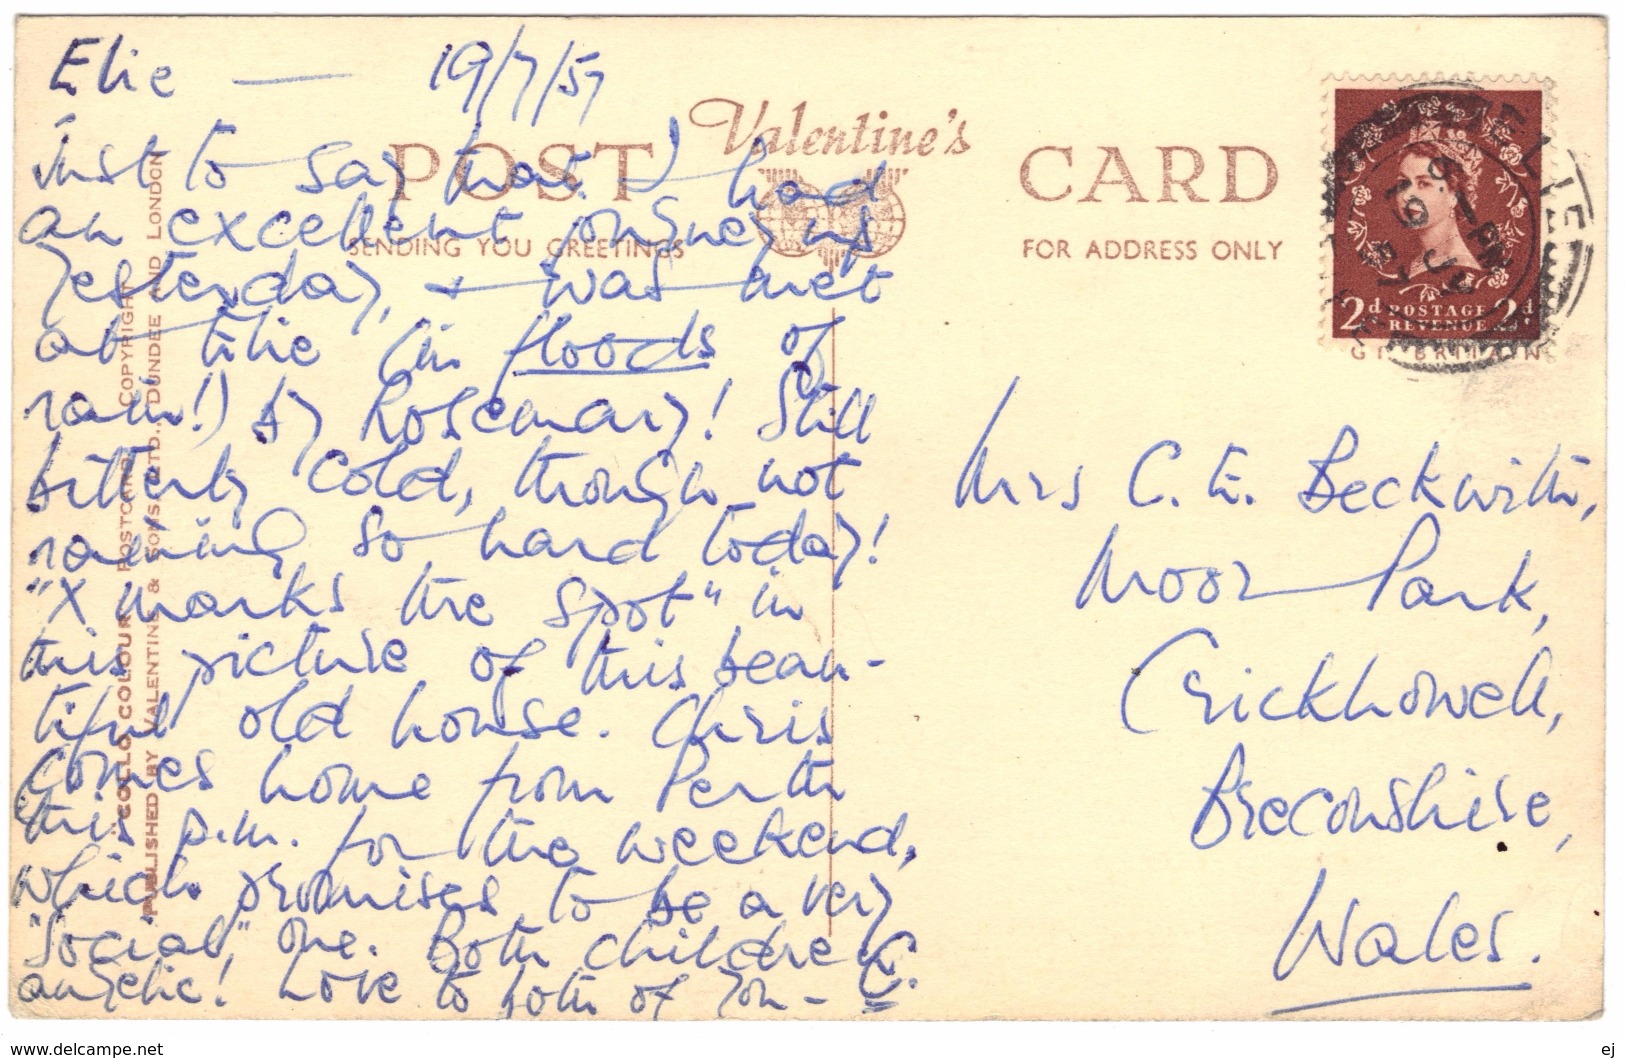 Elie — 19/7/57
Just to say that I had
an excellent journey up
yesterday, & was met
at Elie (in floods of
rain!) by Rosemary! Still
bitterly cold, though not
raining so hard today!
"X marks the spot" in
this picture of this beau-
tiful old house. Chris
comes home from Perth
this p.m. for the weekend,
which promises to be a very
"social" one. Both children
angelic! Love to both of you - C.
POST CARD
Valentine's
SENDING YOU GREETINGS
FOR ADDRESS ONLY
"COLLO COLOUR" POSTCARD COPYRIGHT
PUBLISHED BY VALENTINE & SONS LTD. DUNDEE AND LONDON
2d POSTAGE 2d
REVENUE
GT. BRITAIN
ELIE
Mrs C. E. Beckwith,
Moor Park,
Crickhowell,
Breconshire,
Wales.
www.delcampe.net
ej